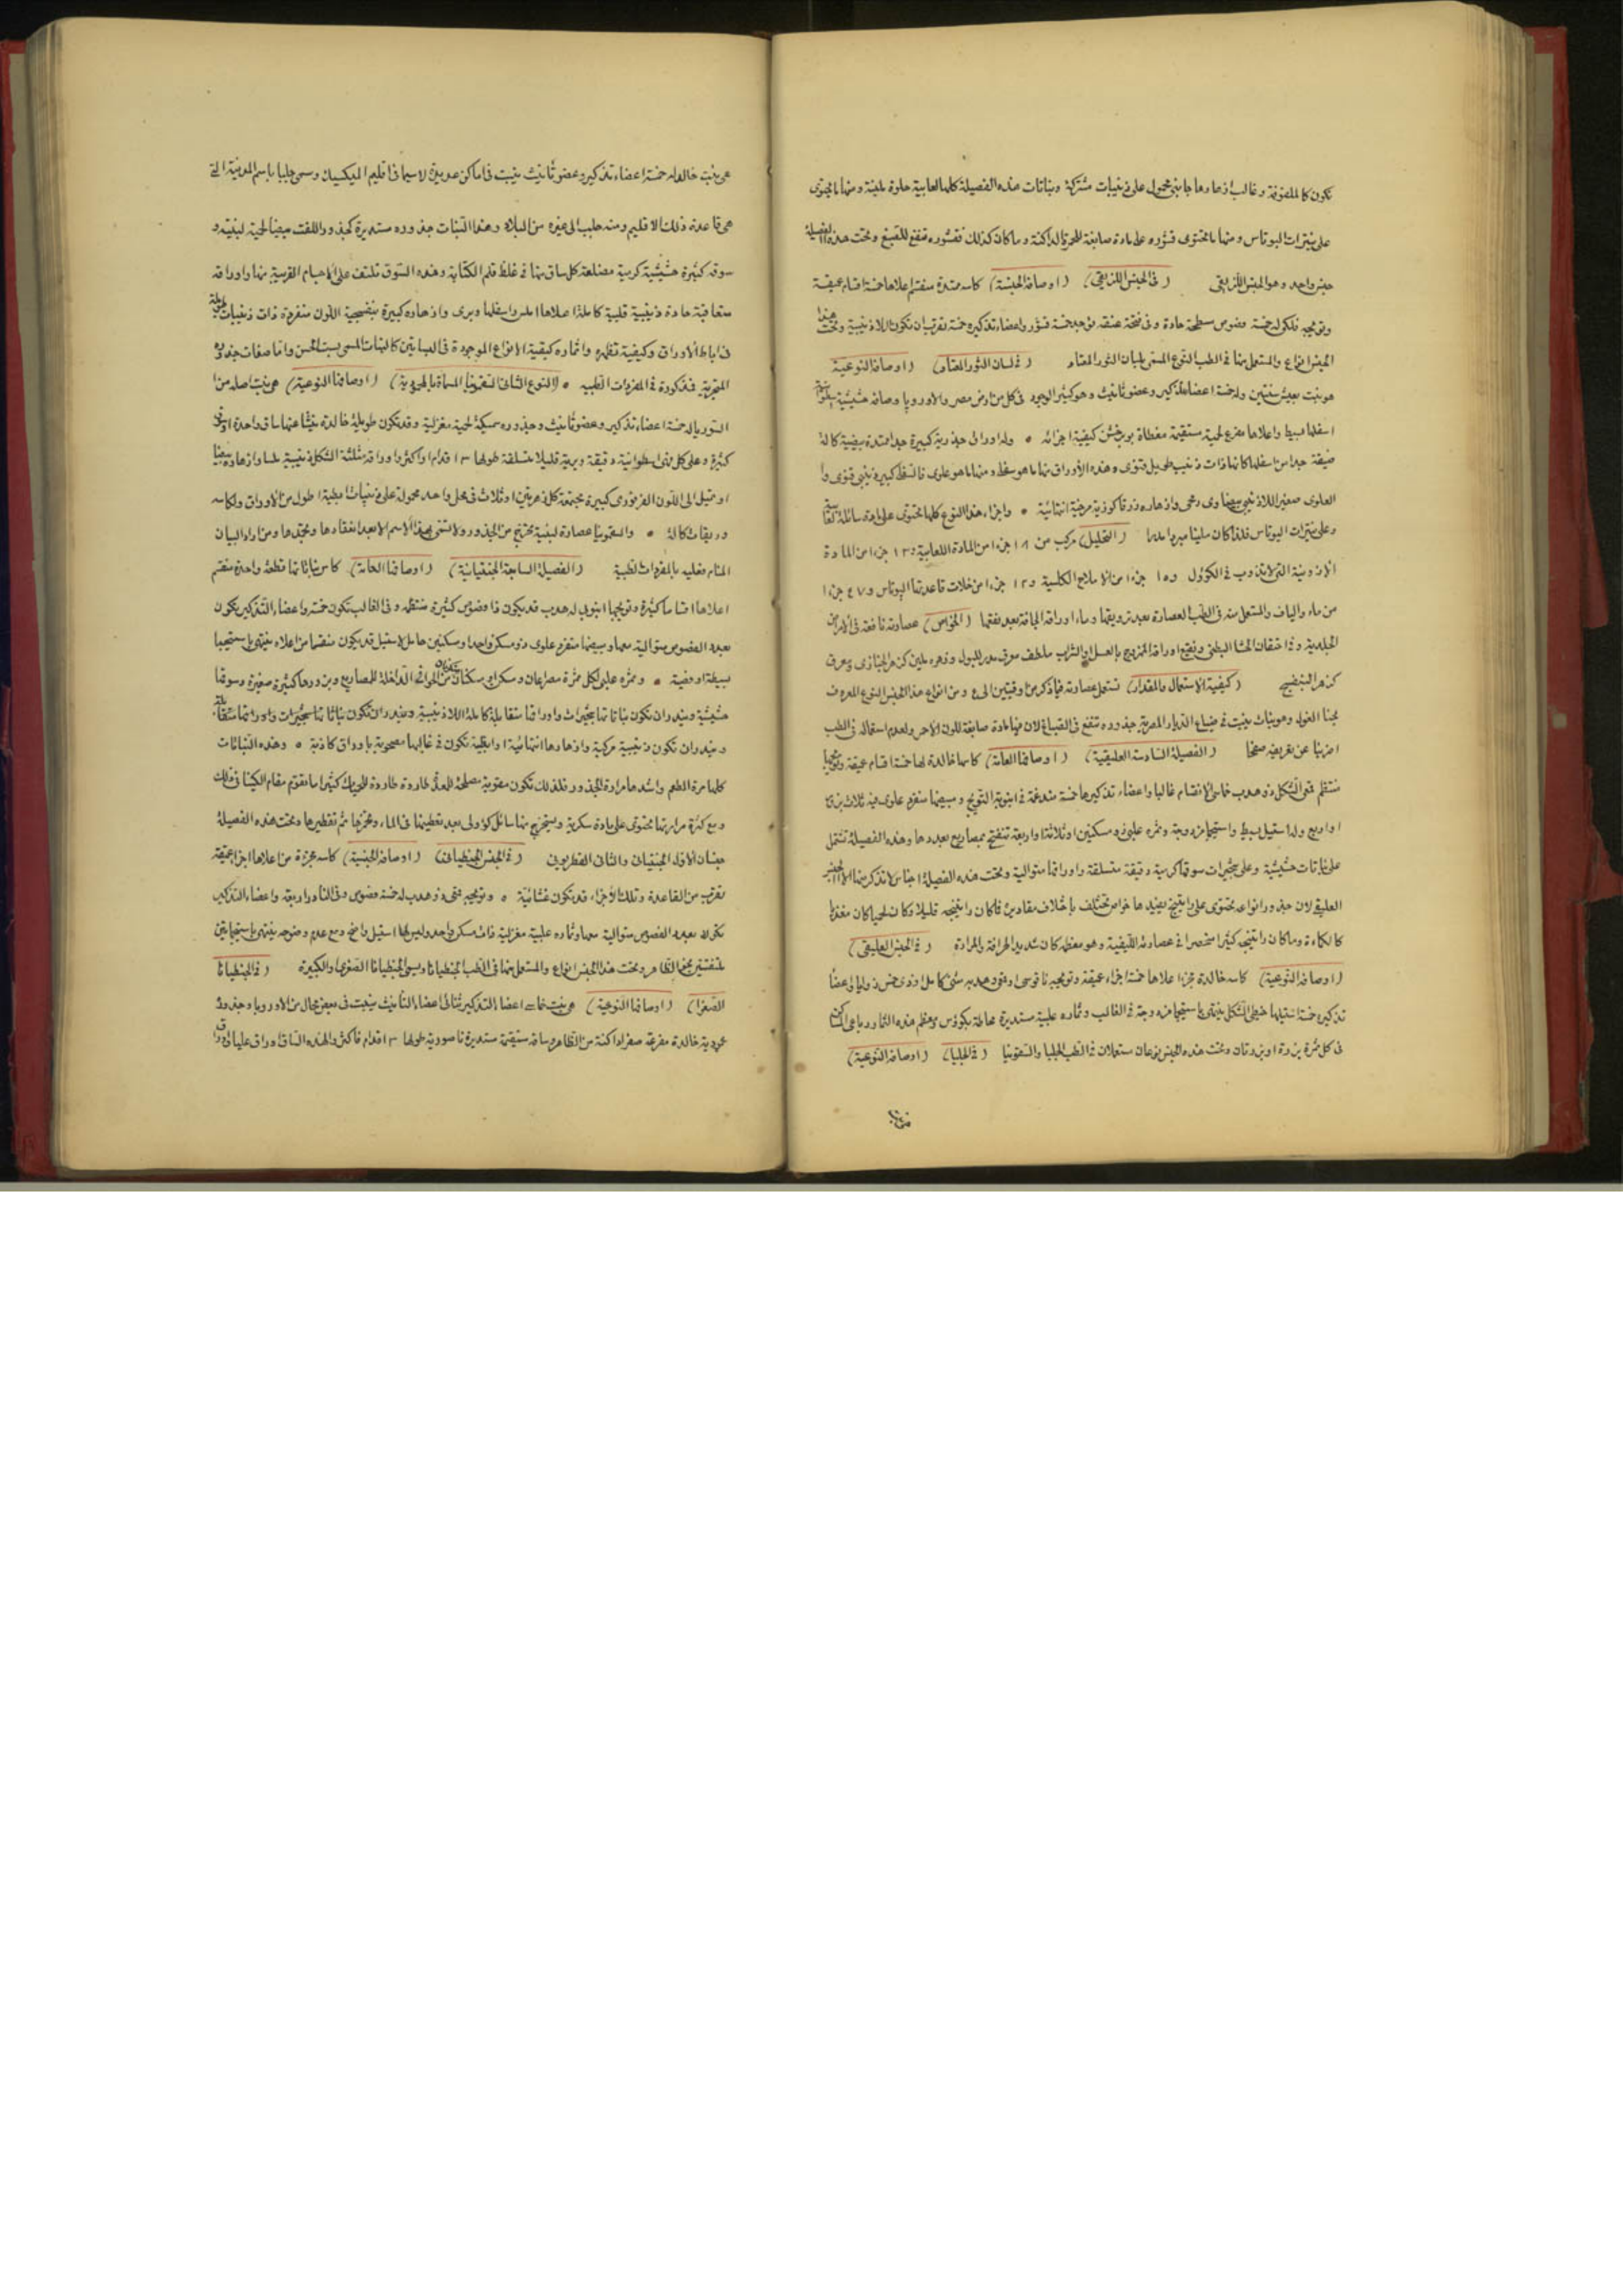 تكون كالملصوقة وغالب ازهارها جانبي محمول على ذنيبات مشتركة ونباتات هذه الفصيلة كلها لعابية حلوة ملينة ومنها ما يحتوى
على نيترات البوتاس ومنها ما يحتوى قشوره على مادة صابغة للحمرة الداكنة وما كان كذلك فقشوره تنفع للصبغ وتحت هذه الفصيلة
جنس واحد وهو الجنس اللزيقى (فى الجنس اللزيقى) (اوصافه الجنسية) كاسه ممتدة منقسم اعلاها خمسة اقسام عميقة
وتويجه فلكى له خمسة فصوص سطحية حادة وفى فتحة عنقه توجد خمسة قشور واعضاء تذكيره خمسة تقرب ان تكون بلا ذنيبة وتحت هذا
الجنس انواع والمستعمل منها فى الطب النوع المسمى بلسان الثور المعتاد (فى لسان الثور المعتاد) (اوصافه النوعية)
هو نبت يعيش سنتين وله خمسة اعضاء تذكير وعضو تأنيث وهو كثير الوجود فى كل من ارض مصر والاوروپا وساقه حشيشية
اسفلها بسيط واعلاها مفرع لحمية مستقيمة مغطاة بوبر خشن كبقية اجزائه ۰ وله اوراق جذرية كبيرة جدا ممتدة بيضية كالة
ضيقة جدا من اسفلها كانها ذات ذنيب طويل قنوى وهذه الأوراق منها ما هو سفلى ومنها ما هو علوى فالسفلى كبيره ذنيبى قنوى و
العلوى صغير بلا ذنيب بيضاوى رمحى وازهاره زرقا كوزية مرضية انتهائية ۰ واجزاء هذا النوع كلها تحتوى على مادة سائلة
وعلى نيترات البوتاس فلذا كان ملينا مبردا مدرا (التحليل) مركب من ١٨ جزءا من المادة اللعابية و١٣ جزءا من المادة
الازوتية التى لا تذوب فى الكؤول و١٥ جزءا من الاملاح الكلسية و١٢ جزءا من خلات قاعدتها البوتاس و٤٧ جزءا
من ماء والياف والمستعمل منه فى الطب العصارة بعد ترويقها وماء اوراقه الجافة بعد نقعها (الخواص) عصارته نافعة فى الامراض
الجلدية وفى احتقان الاحشا البطنى ونقيع اوراقه الممزوج بالعسل والشراب ملطف معرق مدر للبول وزهره ملين كزهر الخبازى ومعرق
كزهر البنفسج (كيفية الاستعمال والمقدار) تستعمل عصارته فيما ذكر من وقيتين الى ٤ ومن انواع هذا الجنس النوع المعروف
بحنا الغول وهو نبات ينبت فى ضياع الديار المصرية جذوره تنفع فى الصباغ لان فيها مادة صابغة للون الاحمر ولعدم استعماله فى الطب
اضربنا عن تعريفه صفحا (الفصيلة السادسة العليقية) (اوصافها العامة) كاسها خالدة لها خمسة اقسام عميقة وتويجها
منتظم قمعى الشكل ذو هدب خماسى الانقسام غالبا واعضاء تذكيرها خمسة مندغمة فى انبوبة التويج ومبيضها منفرد علوى فيه ثلاث بزرات
او اربع وله استيل بسيط واستيجما مزدوجة وثمره علبى ذو مسكنين او ثلاثة او اربعة تنفتح بمصاريع بعددها وهذه الفصيلة تشتمل
على نباتات حشيشية وعلى شجيرات سوقها كرمية رقيقة متسلقة واوراقها متوالية وتحت هذه الفصيلة اجناس لا نذكر منها الا الجنس
العليقى لان جذور انواعه تحتوى على راتينج يفيدها خواص تختلف باختلاف مقاديره فما كان راتينجه قليلا وكان لحميا كان مغذيا
كالكماءة وما كان راتينجه كثيرا منحصرا فى عصارته الليفية وهو معظمه كان شديد الحرافة والمرارة (فى الجنس العليقى)
(اوصافه النوعية) كاسه خالدة مجزءا علاها خمسة اجزاء عميقة وتويجه ناقوسى او قمعى وهدبه مثنى كامل او ذى خمس زوايا واعضاء
تذكيره خمسة استيلها خيطى الشكل ينتهى باستيجما مزدوجة فى الغالب وثماره علبية مستديرة محاطة بكؤوس ومعظم هذه الثمار رباعى المسكن
فى كل ثمرة بزرة او بزرتان وتحت هذه الجنس نوعان مستعملان فى الطب الجلبا والسقمونيا (فى الجلبا) (اوصافه النوعية)
هى نبت خالد له خمسة اعضاء تذكير وعضو تأنيث ينبت فى اماكن عديدة لا سيما فى اقليم المكسيك وسمى جلبا باسم المدينة التى
هى قاعدة ذلك الاقليم ومنه جلب الى غيره من البلاد وهذا النبات جذوره مستديرة كجذور اللفت مبيضا لحمية لبنية و
سوقه كثيرة حشيشية كرمية مضلعة كل ساق منها فى غلظ قلم الكتابة وهذه السوق تلتف على الاجسام القريبة منها واوراقه
متعاقبة حادة ذنيبية قلبية كاملة اعلاها املس واسفلها وبرى وازهاره كبيرة بنفسجية اللون منفردة ذات ذنيبات طويلة
فى اباط الاوراق وكيفية تظهره واثماره كبقية الانواع الموجودة فى البساتين كالنبات المسمى بست الحسن واما صفات جذوره
المتجرية فمذكورة فى المفردات الطبيه ۰ (النوع الثانى السقمونيا المسماة بالمحمودية) (اوصافها النوعية) هى نبت اصله من
السوريا له خمسة اعضاء تذكير وعضو تأنيث وجذوره سميكة لحمية مغزلية وقد تكون طويلة خالدة ينشأ عنها ساق واحدة او سوق
كثيرة وعلى كل فهى اسطوانية رقيقة وبرية قليلا متسلقة طولها ٣ اقدام او اكثر واوراقه مثلثة الشكل ذنيبية ملسا وازهاره بيضا
او تميل الى اللون الفرفورى كبيرة مجتمعة كل زهرتين او ثلاث فى محل واحد محمولة على ذنيبات ابطية اطول من الاوراق ولكاسه
وريقات كالة ۰ والسقمونيا عصارة لبنية تخرج من الجذور ولا تسمى بهذا الاسم الا بعد انعقادها وتجمدها ومن اراد البيان
التام فعليه بالمفردات الطبية (الفصيلة السابعة الجنطيانية) (اوصافها العامة) كاس نباتاتها قطعة واحدة منقسم
اعلاها اقساما كثيرة وتويجها انبوبى له هدب قد يكون ذا فصوص كثيرة منتظمه وفى الغالب تكون خمسة واعضاء التذكير تكون
بعدد الفصوص متوالية معها ومبيضها منفرد علوى ذو مسكن واحد او مسكنين حامل لاستيل قد يكون منقسما من اعلاه ينتهى باستيجما
بسيطة او فصية ۰ وثمره علبى لكل ثمرة مصراعان ومسكن او مسكنان من الحوافى الداخلة للمصاريع وبزورها كثيرة صغيرة وسوقها
حشيشية ويندر ان تكون نباتاتها شجيرات واوراقها متقابلة كاملة بلا ذنيبة ويندر ان تكون نباتاتها شجيرات واوراقها متقابلة
ويندر ان تكون ذنيبية مركبة وازهارها انتهائية او ابطية تكون فى غالبها مصحوبة باوراق كاذبة ۰ وهذه النباتات
كلها مرة الطعم واشدها مرارة الجذور فلذلك تكون مقوية مصلحة للمعدة طاردة للحميات كثيرا ما تقوم مقام الكينا فى ذلك
ومع كثرة مرارتها تحتوى على مادة سكرية ويستخرج منها سائل كؤولى بعد تعطينها فى الماء وتخمرها ثم تقطيرها وتحت هذه الفصيلة
جنسان الاول الجنطيانى والثانى القنطريونى (فى الجنس الجنطيانى) (اوصافه الجنسية) كاسه مجزءة من اعلاها اجزا عميقة
تقرب من القاعدة وتلك الاجزاء قد تكون غشائية ۰ وتويجه قمعى ذو هدب له خمسة فصوص وفى النادر اربعة واعضاء التذكير
تكون بعدد الفصوص متوالية معها وثماره علبية مغزلية ذات مسكن واحد وليس لها استيل واضح ومع عدم وضوحه ينتهى باستيجماتين
ملتفتين نحو الظاهر وتحت هذا الجنس انواع والمستعمل منها فى الطب الجنطيانا ويسمى الجنطيانا الصغرى والكبيرة (فى الجنطيانا
الصغرا) (اوصافها النوعية) هى نبت خماسى اعضاء التذكير ثنائى اعضاء التأنيث ينبت فى بعض جبال من الاوروپا وجذوره
عمودية خالدة مفرعة صفرا داكنة من الظاهر وساقه مستقيمة مستديرة ناصورية طولها ٣ اقدام فاكثر ولهذه الساق اوراق عليا